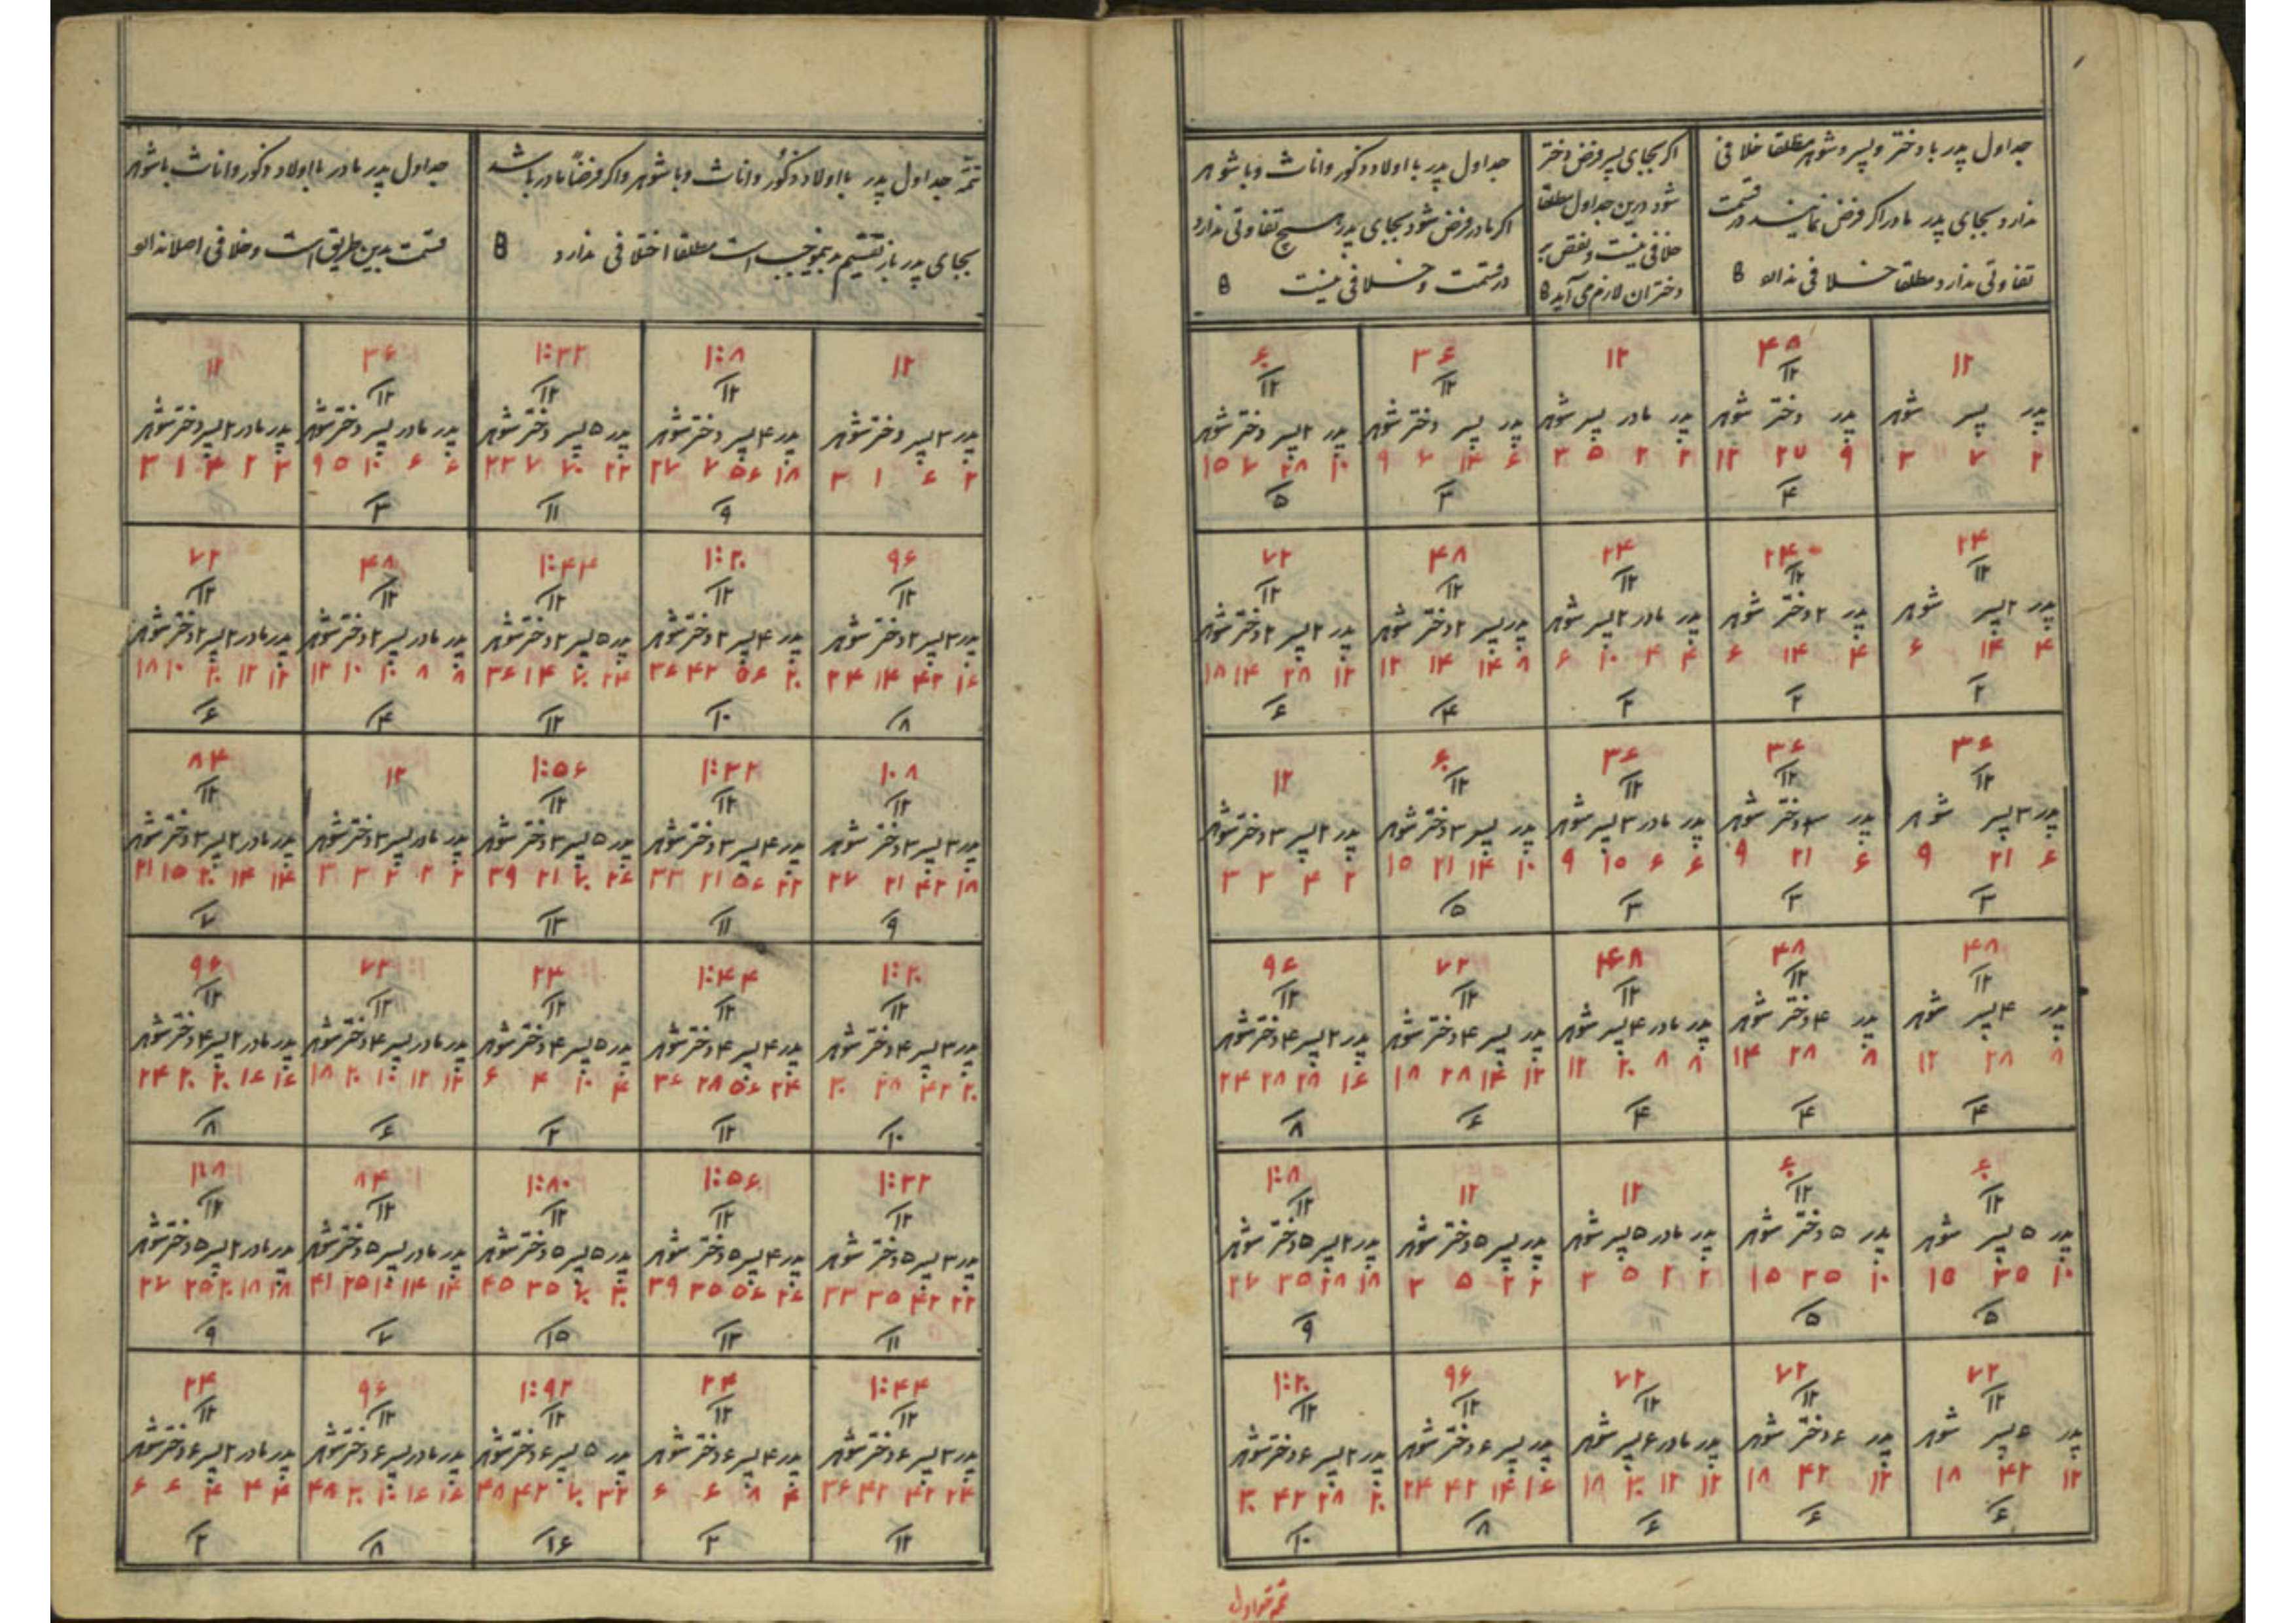 جداول پدر با دختر و پسر و شوهر مطلقا خلافی
ندارد بجای پدر مادر اگر فرض نمایند در قسمت
تفاوتی ندارد مطلقا خلافی ندارد
اکر بجای پسر فرض دختر
شود درین جداول مطلقا
خلافی نیست و نقص بر
دختران لازم می آید
جداول پدر با اولاد ذکور و اناث و با شوهر
اکر مادر فرض شود بجای پدر هیچ تفاوتی ندارد
در قسمت و خلافی نیست
۱۲
پدر پسر شوهر
۲ ۷ ۳
۴۸
۱۲
پدر دختر شوهر
۹ ۲۷ ۱۲
۴
۱۲
پدر مادر پسر شوهر
۲ ۲ ۵ ۳
۳۶
۱۲
پدر پسر دختر شوهر
۶ ۱۴ ۷ ۹
۳
۶۰
۱۲
پدر ۲ پسر دختر شوهر
۱۰ ۲۸ ۷ ۱۵
۵
۲۴
۱۲
پدر ۲ پسر شوهر
۴ ۱۴ ۶
۲
۲۴
۱۲
پدر ۲ دختر شوهر
۴ ۱۴ ۶
۲
۲۴
۱۲
پدر مادر ۲ پسر شوهر
۴ ۴ ۱۰ ۶
۲
۴۸
۱۲
پدر پسر ۲ دختر شوهر
۸ ۱۴ ۱۴ ۱۲
۴
۷۲
۱۲
پدر ۲ پسر ۲ دختر شوهر
۱۲ ۲۸ ۱۴ ۱۸
۶
۳۶
۱۲
پدر ۳ پسر شوهر
۶ ۲۱ ۹
۳
۳۶
۱۲
پدر ۳ دختر شوهر
۶ ۲۱ ۹
۳
۳۶
۱۲
پدر مادر ۳ پسر شوهر
۶ ۶ ۱۵ ۹
۳
۶۰
۱۲
پدر پسر ۳ دختر شوهر
۱۰ ۱۴ ۲۱ ۱۵
۵
۱۲
پدر ۲ پسر ۳ دختر شوهر
۲ ۴ ۳ ۳
۴۸
۱۲
پدر ۴ پسر شوهر
۸ ۲۸ ۱۲
۴
۴۸
۱۲
پدر ۴ دختر شوهر
۸ ۲۸ ۱۴
۴
۴۸
۱۲
پدر مادر ۴ پسر شوهر
۸ ۸ ۲۰ ۱۲
۴
۷۲
۱۲
پدر پسر ۴ دختر شوهر
۱۲ ۱۴ ۲۸ ۱۸
۶
۹۶
۱۲
پدر ۲ پسر ۴ دختر شوهر
۱۶ ۲۸ ۲۸ ۲۴
۸
۶۰
۱۲
پدر ۵ پسر شوهر
۱۰ ۳۵ ۱۵
۵
۶۰
۱۲
پدر ۵ دختر شوهر
۱۰ ۳۵ ۱۵
۵
۱۲
پدر مادر ۵ پسر شوهر
۲ ۲ ۵ ۳
۱۲
پدر پسر ۵ دختر شوهر
۲ ۲ ۵ ۳
۱۰۸
۱۲
پدر ۲ پسر ۵ دختر شوهر
۱۸ ۲۸ ۳۵ ۲۷
۹
۷۲
۱۲
پدر پسر شوهر
۱۲ ۴۲ ۱۸
۶
۷۲
۱۲
پدر ۶ دختر شوهر
۱۲ ۴۲ ۱۸
۶
۷۲
۱۲
پدر مادر ۶ پسر شوهر
۱۲ ۱۲ ۳۰ ۱۸
۶
۹۶
۱۲
پدر پسر ۶ دختر شوهر
۱۶ ۱۴ ۴۲ ۲۴
۸
۱۲۰
۱۲
پدر ۲ پسر ۶ دختر شوهر
۲۰ ۲۸ ۴۲ ۳۰
۱۰
تتمه جداول پدر با اولاد ذکور و اناث و با شوهر و اکر فرضاً مادر باشد
بجای پدر باز تقسیم بموجب است مطلقا اختلافی ندارد
جداول پدر مادر با اولاد ذکور و اناث با شوهر
قسمت بدین طریق است و خلافی اصلا ندارد
۱۲
پدر ۳ پسر دختر شوهر
۲ ۶ ۱ ۳
۱۰۸
۱۲
پدر ۴ پسر دختر شوهر
۱۸ ۵۶ ۷ ۲۷
۹
۱۳۲
۱۲
پدر ۵ پسر دختر شوهر
۲۲ ۷۰ ۷ ۳۳
۱۱
۳۶
۱۲
پدر مادر پسر دختر شوهر
۶ ۶ ۱۰ ۵ ۹
۳
۱۲
پدر مادر ۲ پسر دختر شوهر
۲ ۲ ۴ ۱ ۳
۹۶
۱۲
پدر ۳ پسر ۲ دختر شوهر
۱۶ ۴۲ ۱۴ ۲۴
۸
۱۲۰
۱۲
پدر ۴ پسر ۲ دختر شوهر
۲۰ ۵۶ ۴۲ ۳۶
۱۰
۱۴۴
۱۲
پدر ۵ پسر ۲ دختر شوهر
۲۴ ۷۰ ۱۴ ۳۶
۱۲
۴۸
۱۲
پدر مادر پسر ۲ دختر شوهر
۸ ۸ ۱۰ ۱۰ ۱۲
۴
۷۲
۱۲
پدر مادر ۲ پسر ۲ دختر شوهر
۱۲ ۱۲ ۲۰ ۱۰ ۱۸
۶
۱۰۸
۱۲
پدر ۳ پسر ۳ دختر شوهر
۱۸ ۴۲ ۲۱ ۲۷
۹
۱۳۲
۱۲
پدر ۴ پسر ۳ دختر شوهر
۲۲ ۵۶ ۲۱ ۳۳
۱۱
۱۵۶
۱۲
پدر ۵ پسر ۳ دختر شوهر
۲۶ ۷۰ ۲۱ ۳۹
۱۳
۱۲
پدر مادر پسر ۳ دختر شوهر
۲ ۲ ۲ ۳ ۳
۸۴
۱۲
پدر مادر ۲ پسر ۳ دختر شوهر
۱۴ ۱۴ ۲۰ ۱۵ ۲۱
۷
۱۲۰
۱۲
پدر ۳ پسر ۴ دختر شوهر
۲۰ ۴۲ ۲۸ ۳۰
۱۰
۱۴۴
۱۲
پدر ۴ پسر ۴ دختر شوهر
۲۴ ۵۶ ۲۸ ۳۶
۱۲
۲۴
۱۲
پدر ۵ پسر ۴ دختر شوهر
۴ ۱۰ ۴ ۶
۲
۷۲
۱۲
پدر مادر پسر ۴ دختر شوهر
۱۲ ۱۲ ۱۰ ۲۰ ۱۸
۶
۹۶
۱۲
پدر مادر ۲ پسر ۴ دختر شوهر
۱۶ ۱۶ ۲۰ ۲۰ ۲۴
۸
۱۳۲
۱۲
پدر ۳ پسر ۵ دختر شوهر
۲۲ ۴۲ ۳۵ ۳۳
۱۱
۱۵۶
۱۲
پدر ۴ پسر ۵ دختر شوهر
۲۶ ۵۶ ۳۵ ۳۹
۱۳
۱۸۰
۱۲
پدر ۵ پسر ۵ دختر شوهر
۳۰ ۷۰ ۳۵ ۴۵
۱۵
۸۴
۱۲
پدر مادر پسر ۵ دختر شوهر
۱۴ ۱۴ ۱۰ ۲۵ ۴۱
۷
۱۰۸
۱۲
پدر مادر ۲ پسر ۵ دختر شوهر
۱۸ ۱۸ ۲۰ ۲۵ ۲۷
۹
۱۴۴
۱۲
پدر ۳ پسر ۶ دختر شوهر
۲۴ ۴۲ ۴۲ ۳۶
۱۲
۲۴
۱۲
پدر ۴ پسر ۶ دختر شوهر
۴ ۸ ۶ ۶
۲
۱۹۲
۱۲
پدر ۵ پسر ۶ دختر شوهر
۳۲ ۷۰ ۴۲ ۴۸
۱۶
۹۶
۱۲
پدر مادر پسر ۶ دختر شوهر
۱۶ ۱۶ ۱۰ ۳۰ ۴۸
۸
۲۴
۱۲
پدر مادر ۲ پسر ۶ دختر شوهر
۴ ۴ ۴ ۶ ۶
۲